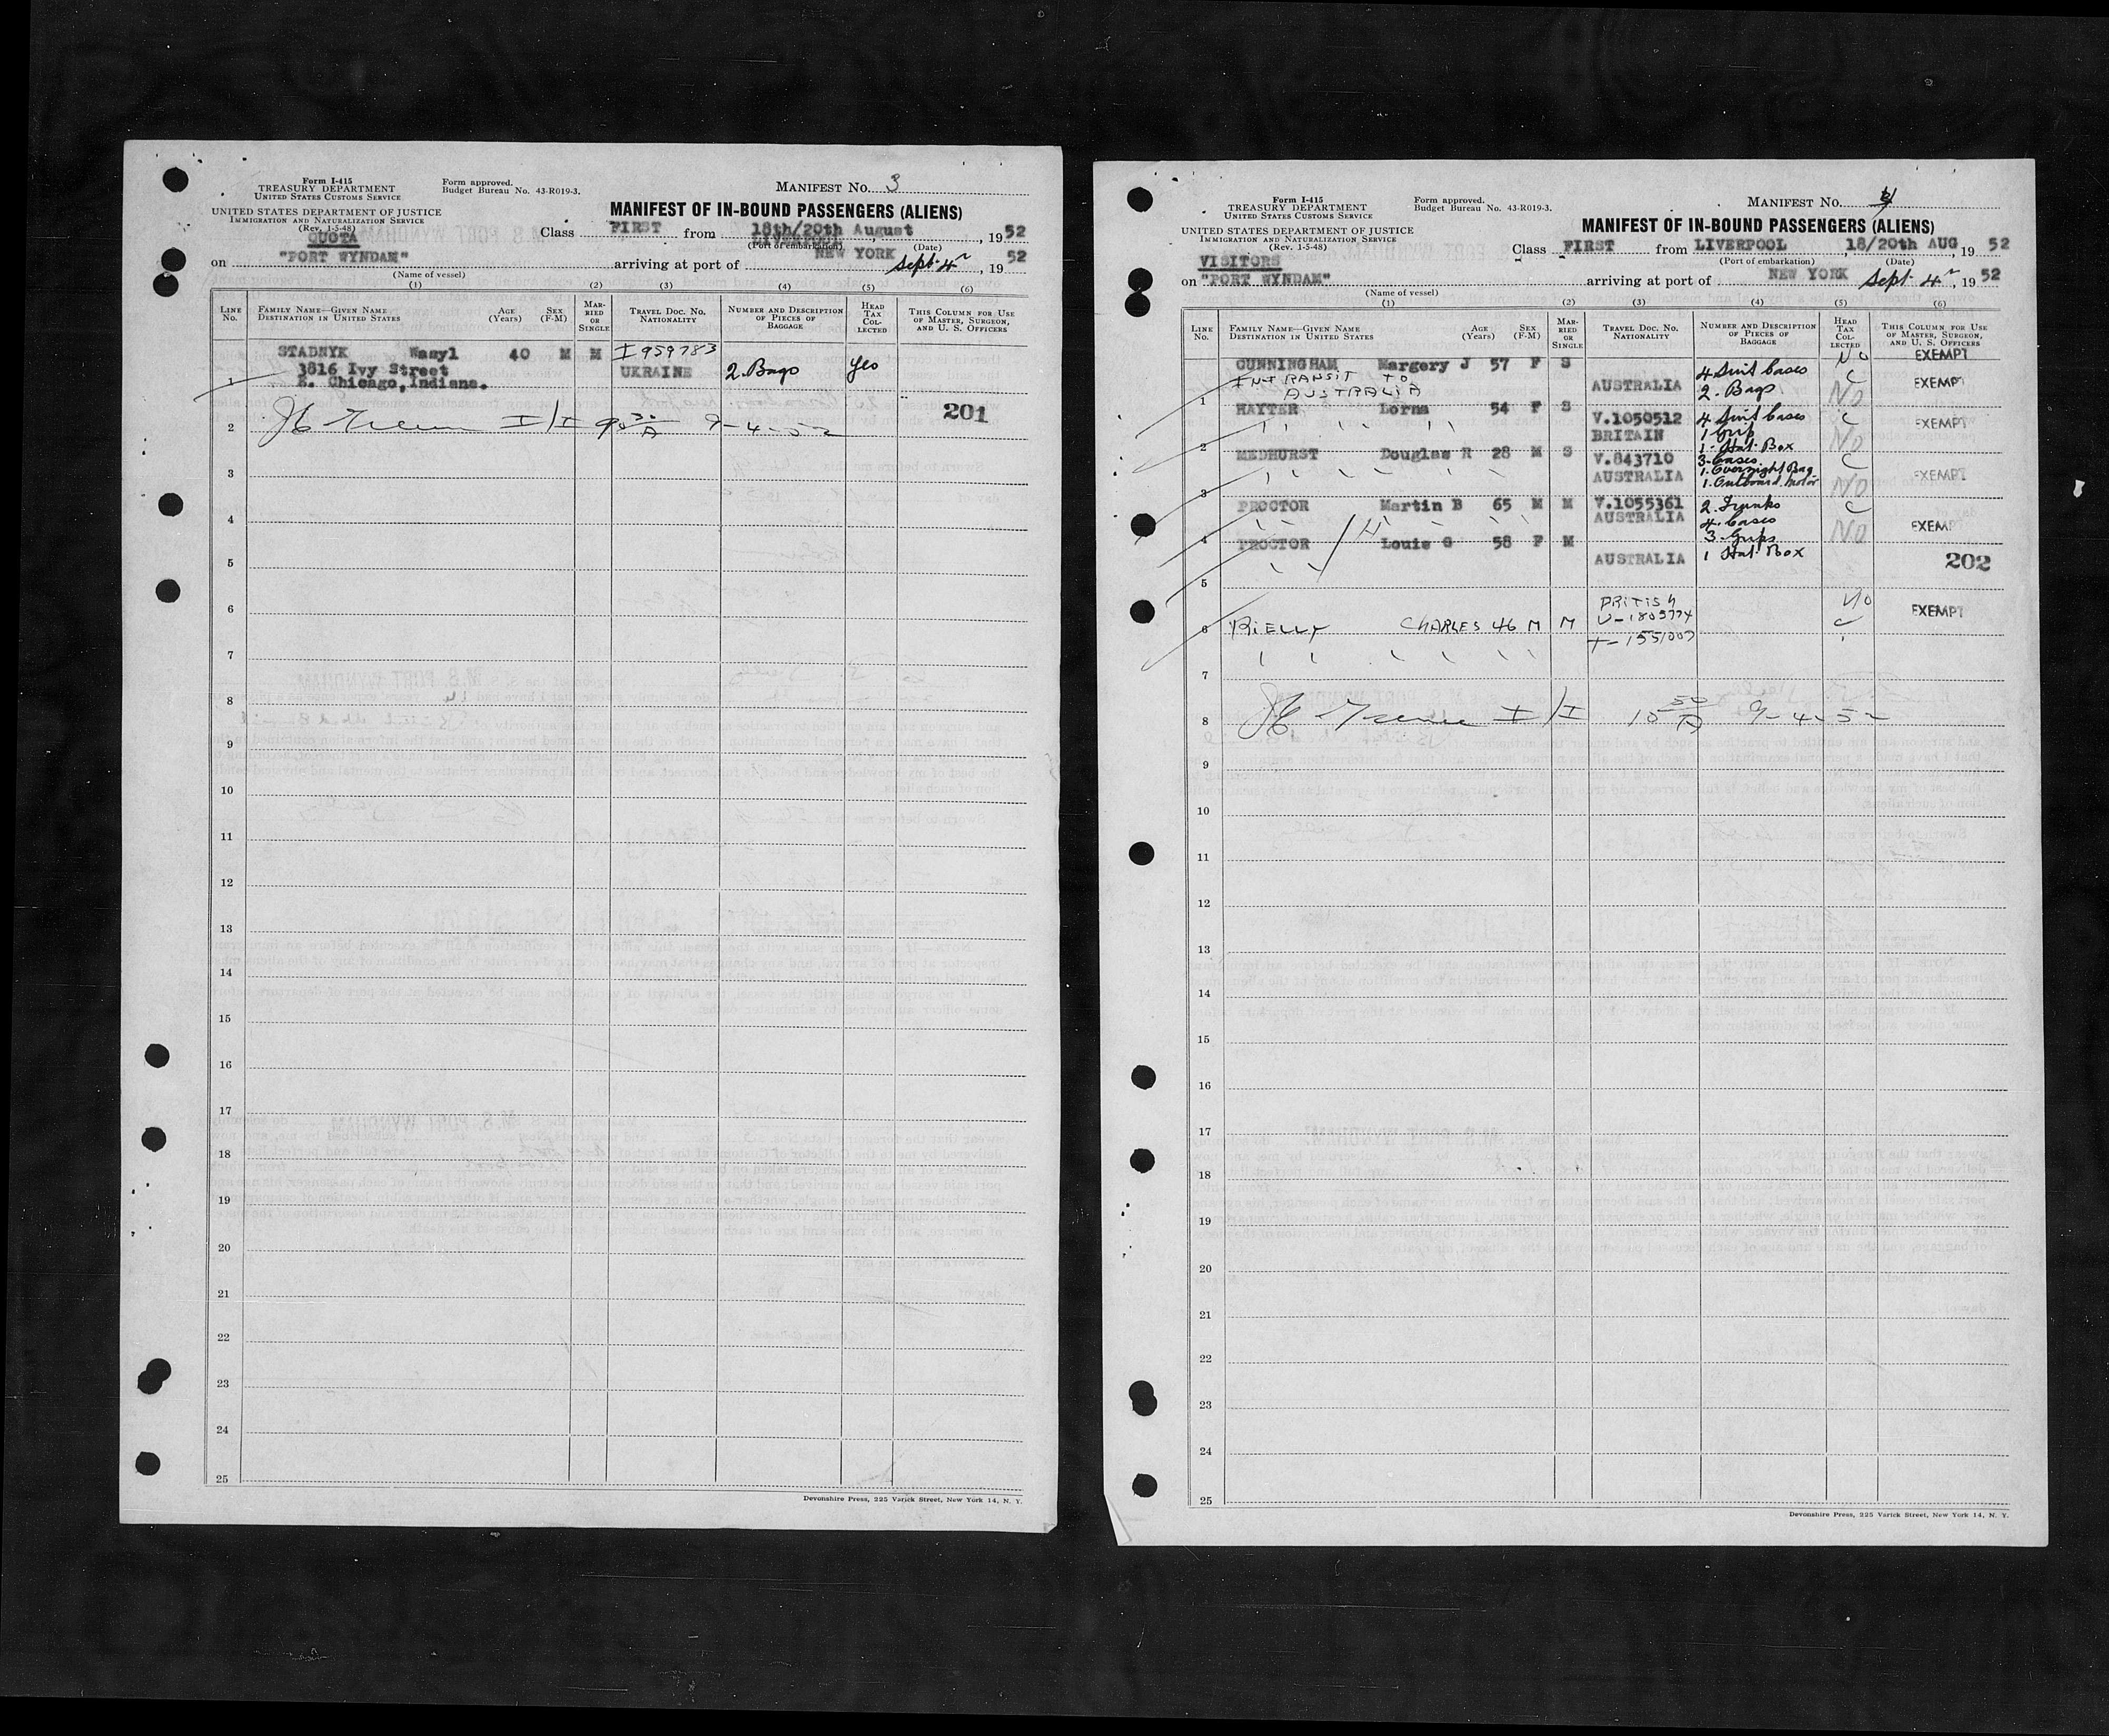 Form I-415
TREASURY DEPARTMENT
UNITED STATES CUSTOMS SERVICE
Form approved.
Budget Bureau No. 43-R019-3.
MANIFEST No. 3
UNITED STATES DEPARTMENT OF JUSTICE
IMMIGRATION AND NATURALIZATION SERVICE
(Rev. 1-5-48)
MANIFEST OF IN-BOUND PASSENGERS (ALIENS)
QUOTA
Class FIRST from 18th/20th August, 1952
(Port of embarkation) (Date)
on "PORT WYNDAM" arriving at port of NEW YORK Sept. 4, 1952
(Name of vessel)
(1) (2) (3) (4) (5) (6)
LINE No. FAMILY NAME—GIVEN NAME DESTINATION IN UNITED STATES AGE (Years) SEX (F-M) MARRIED OR SINGLE TRAVEL DOC. NO. NATIONALITY NUMBER AND DESCRIPTION OF PIECES OF BAGGAGE HEAD TAX COLLECTED THIS COLUMN FOR USE OF MASTER, SURGEON, AND U. S. OFFICERS
STADNYK Wasyl 40 M M I 959783
3816 Ivy Street UKRAINE 2. Bags Yes
1 E. Chicago, Indiana.
201
2 I/I 9 30/A 9-4-52
3
4
5
6
7
8
9
10
11
12
13
14
15
16
17
18
19
20
21
22
23
24
25
Devonshire Press, 225 Varick Street, New York 14, N. Y.
Form I-415
TREASURY DEPARTMENT
UNITED STATES CUSTOMS SERVICE
Form approved.
Budget Bureau No. 43-R019-3.
MANIFEST No.
UNITED STATES DEPARTMENT OF JUSTICE
IMMIGRATION AND NATURALIZATION SERVICE
(Rev. 1-5-48)
MANIFEST OF IN-BOUND PASSENGERS (ALIENS)
VISITORS
Class FIRST from LIVERPOOL 18/20th AUG, 1952
(Port of embarkation) (Date)
on "PORT WYNDAM" arriving at port of NEW YORK Sept 4, 1952
(Name of vessel)
(1) (2) (3) (4) (5) (6)
LINE No. FAMILY NAME—GIVEN NAME DESTINATION IN UNITED STATES AGE (Years) SEX (F-M) MARRIED OR SINGLE TRAVEL DOC. NO. NATIONALITY NUMBER AND DESCRIPTION OF PIECES OF BAGGAGE HEAD TAX COLLECTED THIS COLUMN FOR USE OF MASTER, SURGEON, AND U. S. OFFICERS
CUNNINGHAM Margery J 57 F S 4 Suit Cases No EXEMPT
IN TRANSIT TO AUSTRALIA AUSTRALIA 2. Bags EXEMPT
1 HAYTER Lorna 54 F S V.1050512 4 Suit Cases No
" " " " BRITAIN 1 Grip EXEMPT
1 Hat Box
2 MEDHURST Douglas R 28 M S V.843710 3 Cases No
" " " " AUSTRALIA 1. Overnight Bag EXEMPT
1. Outboard Motor
3 PROCTOR Martin B 65 M M V.1055361 2. Trunks No
" " " " AUSTRALIA 4. Cases EXEMPT
4 PROCTOR Louie G 58 F M 3 Grips No
AUSTRALIA 1 Hat Box 202
5
BRITISH No EXEMPT
V-1805774
6 RIELLY CHARLES 46 M M
T-1551007
7
8 I/I 10 50/A 9-4-52
9
10
11
12
13
14
15
16
17
18
19
20
21
22
23
24
25
Devonshire Press, 225 Varick Street, New York 14, N. Y.